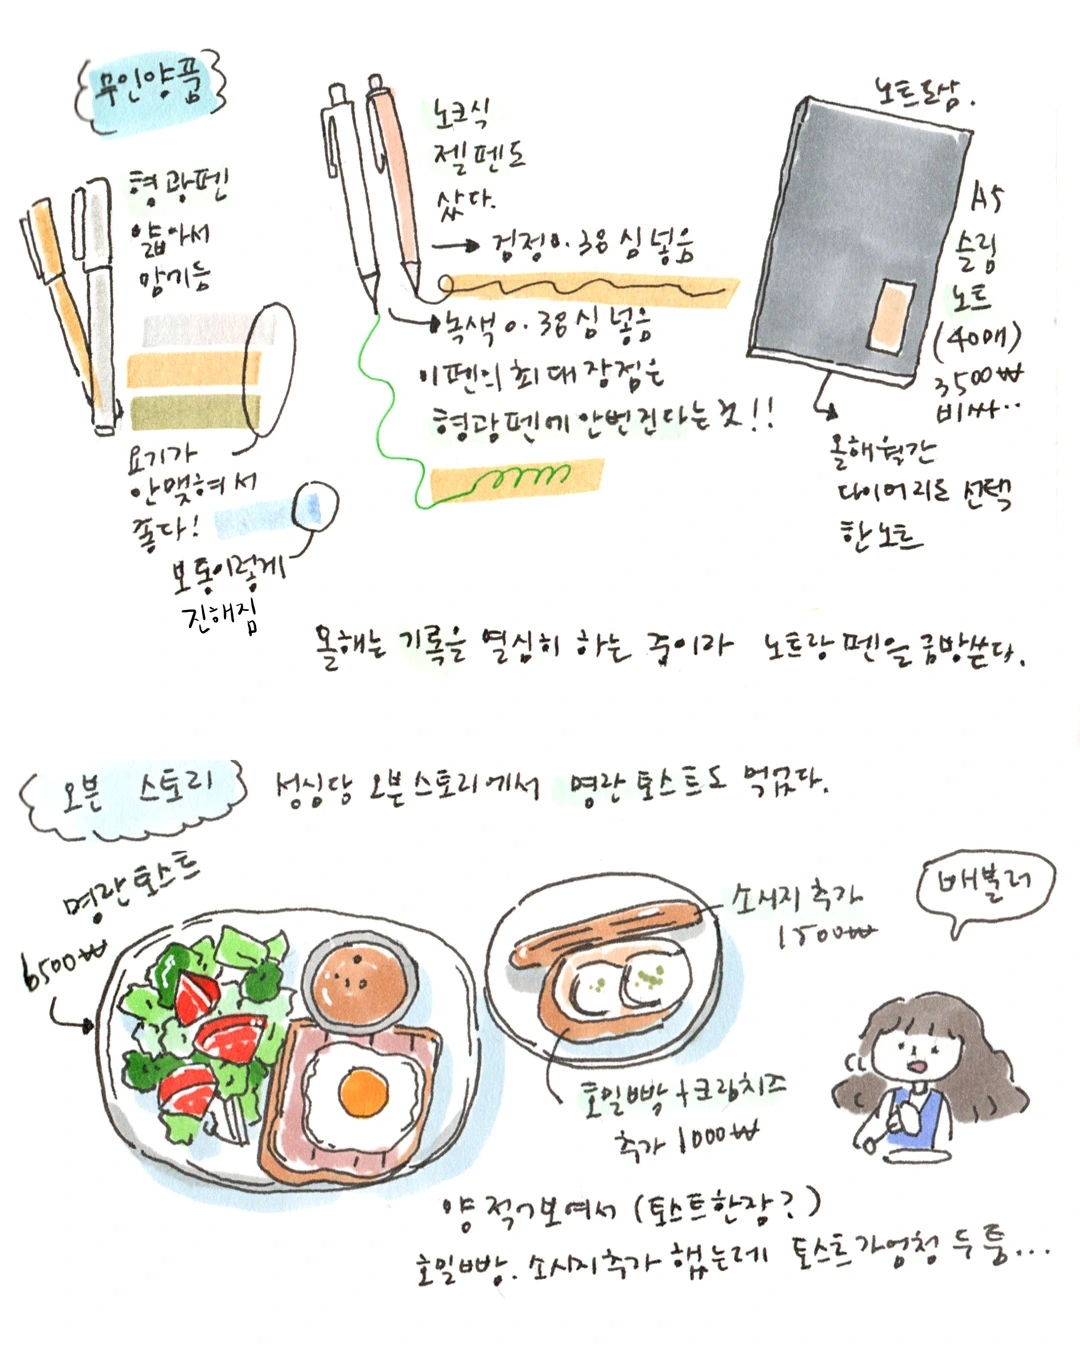 무인양품
형광펜
얇아서
맘에듬
요기가
안맺혀서
좋다!
보통이렇게
진해짐
노크식
젤펜도
샀다.
검정0.38심넣음
녹색0.38심넣음
이펜의최대장점은
형광펜에안번진다는것!!
노트도삼.
A5
슬림
노트
(40매)
3500₩
비싸..
올해월간
다이어리로 선택
한노트
올해는 기록을 열심히 하는 중이라 노트랑펜을금방쓴다.
오븐 스토리
성심당 오븐스토리에서 명란토스트도 먹었다.
명란토스트
6500₩
소시지추가
1500₩
배불러
호밀빵+크림치즈
추가1000₩
양적어보여서 (토스트한장?)
호밀빵.소시지추가했는데 토스트가엄청두툼...